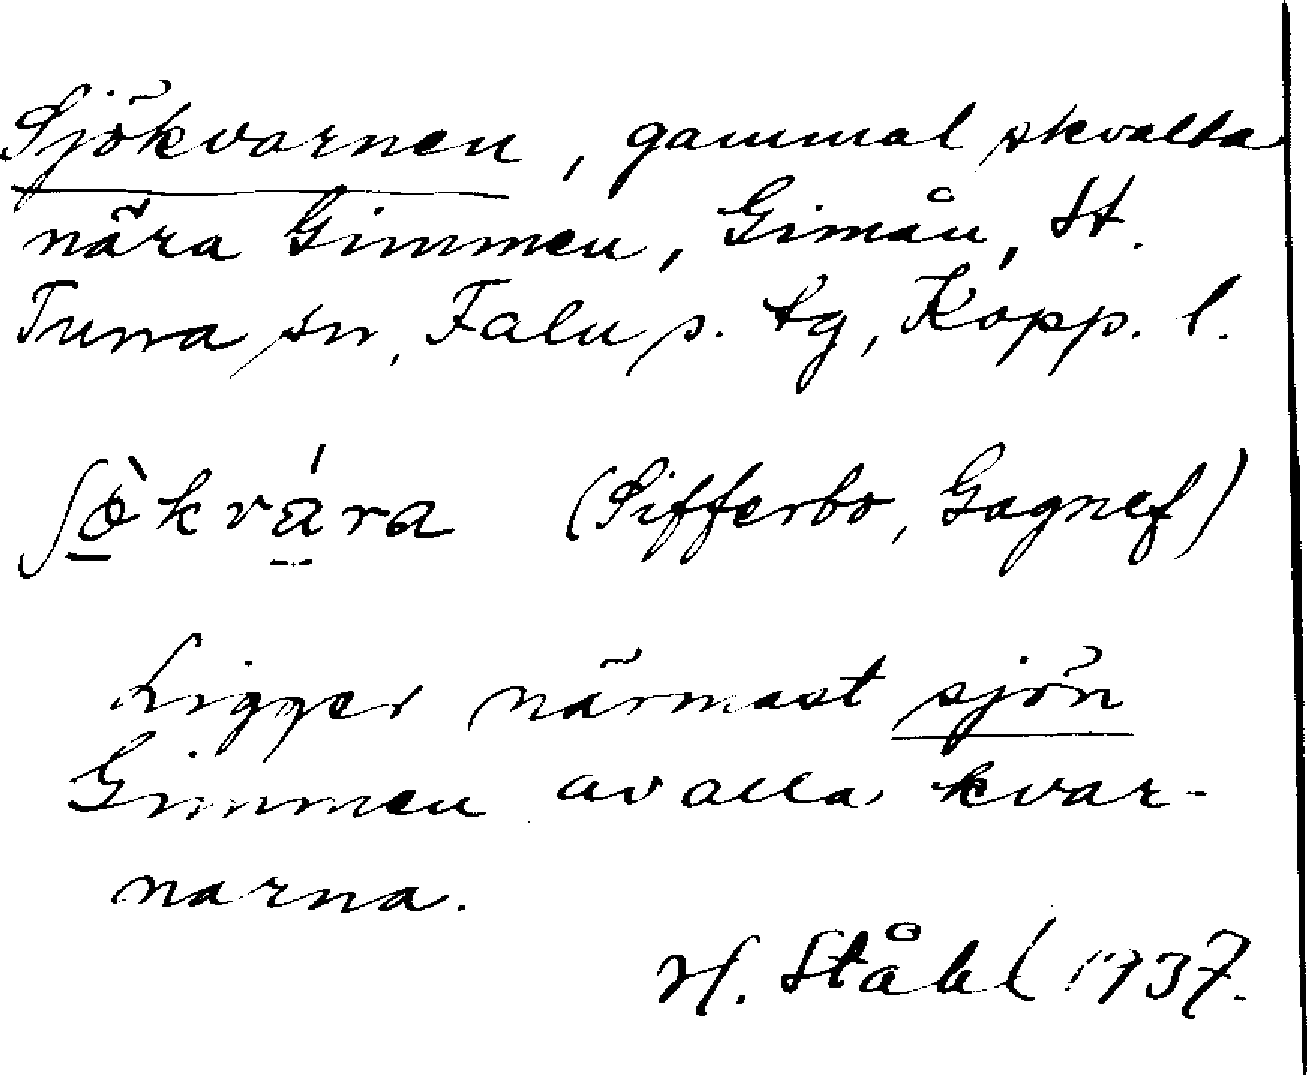 Sjökvarnen, gammal skvalta
nära Gimmen, Gimån, St.
Tuna sn, Falu s. tg, Kopp. l.
ʃö̀kvára (Sifferbo, Gagnef)
Ligger närmast sjön
Gimmen av alla kvar-
narna.
H. Ståhl 1937.